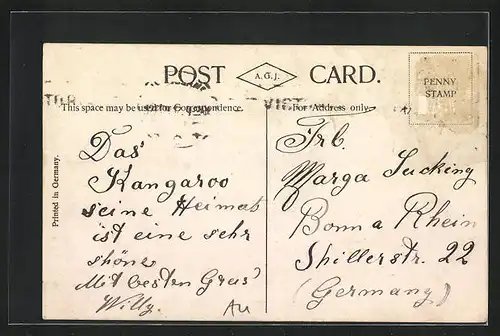 POST A.G.J. CARD.
This space may be used for Correspondence.
For Address only.
PENNY
STAMP
VICT
Printed in Germany.
Das
Kangaroo
seine Heimat
ist eine sehr
shöne
Mit besten Grus'
Willy.
Au
Frl.
Marga Sucking
Bonn a Rhein
Shillerstr. 22
(Germany)